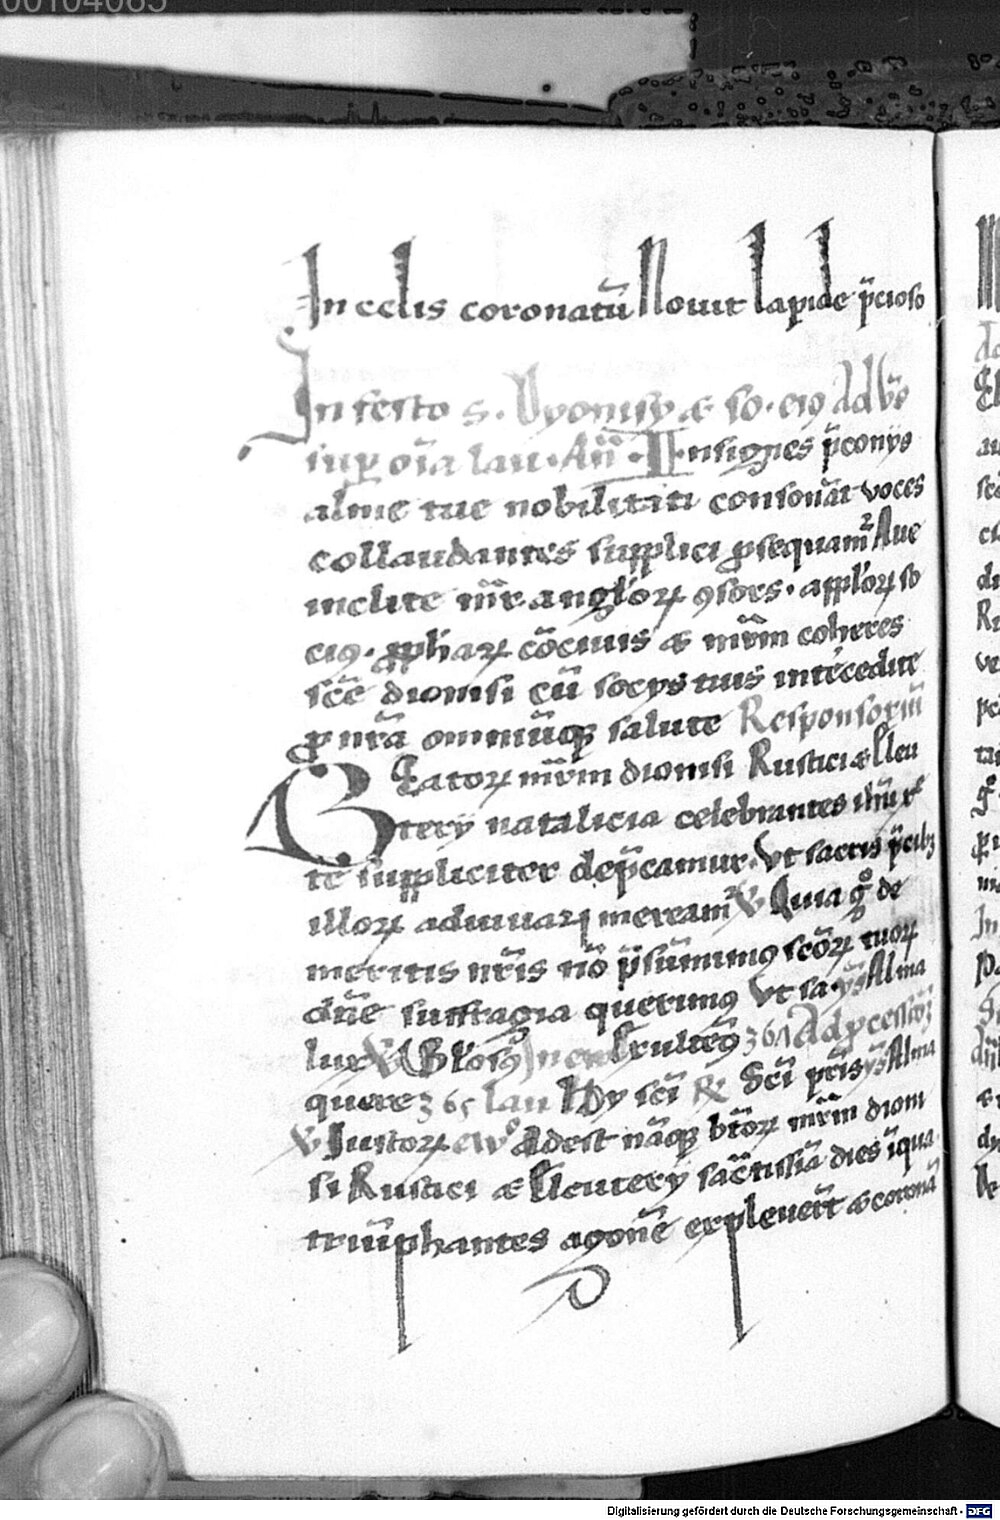 00104085
In celis coronatū Nouit lapide p̄cioso
In festo s. Dyonisy ⁊ so. eiꝯ Ad
sup oīa lau. Añ. Insignes p̄conys
alme tue nobilitati consonāt voces
collaudantes supplici ꝓsequam̄ Aue
inclite mr̄ anglorꝝ ꝯsors. applorꝝ so
ciꝯ. ꝓpharꝝ cōciuis ⁊ mr̄m coheres
scē dionisi cū socys tuis int̄cedite
ꝓ nr̄a omniūqꝫ salute Responsoriū
Beatorꝝ mr̄m dionisi Rustici ⁊ Eleu
tery natalicia celebrantes
te suppliciter dep̄camur. Vt sacris p̄cibꝫ
illorꝝ adiuuari meream̄ ℣ Quia de
meritis nr̄is nō p̄sūmimꝯ scōrꝝ tuorꝝ
dn̄e suffragia querimꝯ Vt sa. ys Alma
lux ℣ 361 Ad ꝓcessiōꝫ
quere 365 lau Hy sci ℟ Sci pr̄is ys Alma
℣ Iustorꝝ Adest nāqꝫ btōrꝝ mr̄m dioni
si Rustici ⁊ Eleutery sac̄tissīa dies īqua
triūphantes agonē expleuer̄t ⁊ coronā
Digitalisierung gefördert durch die Deutsche Forschungsgemeinschaft - DFG